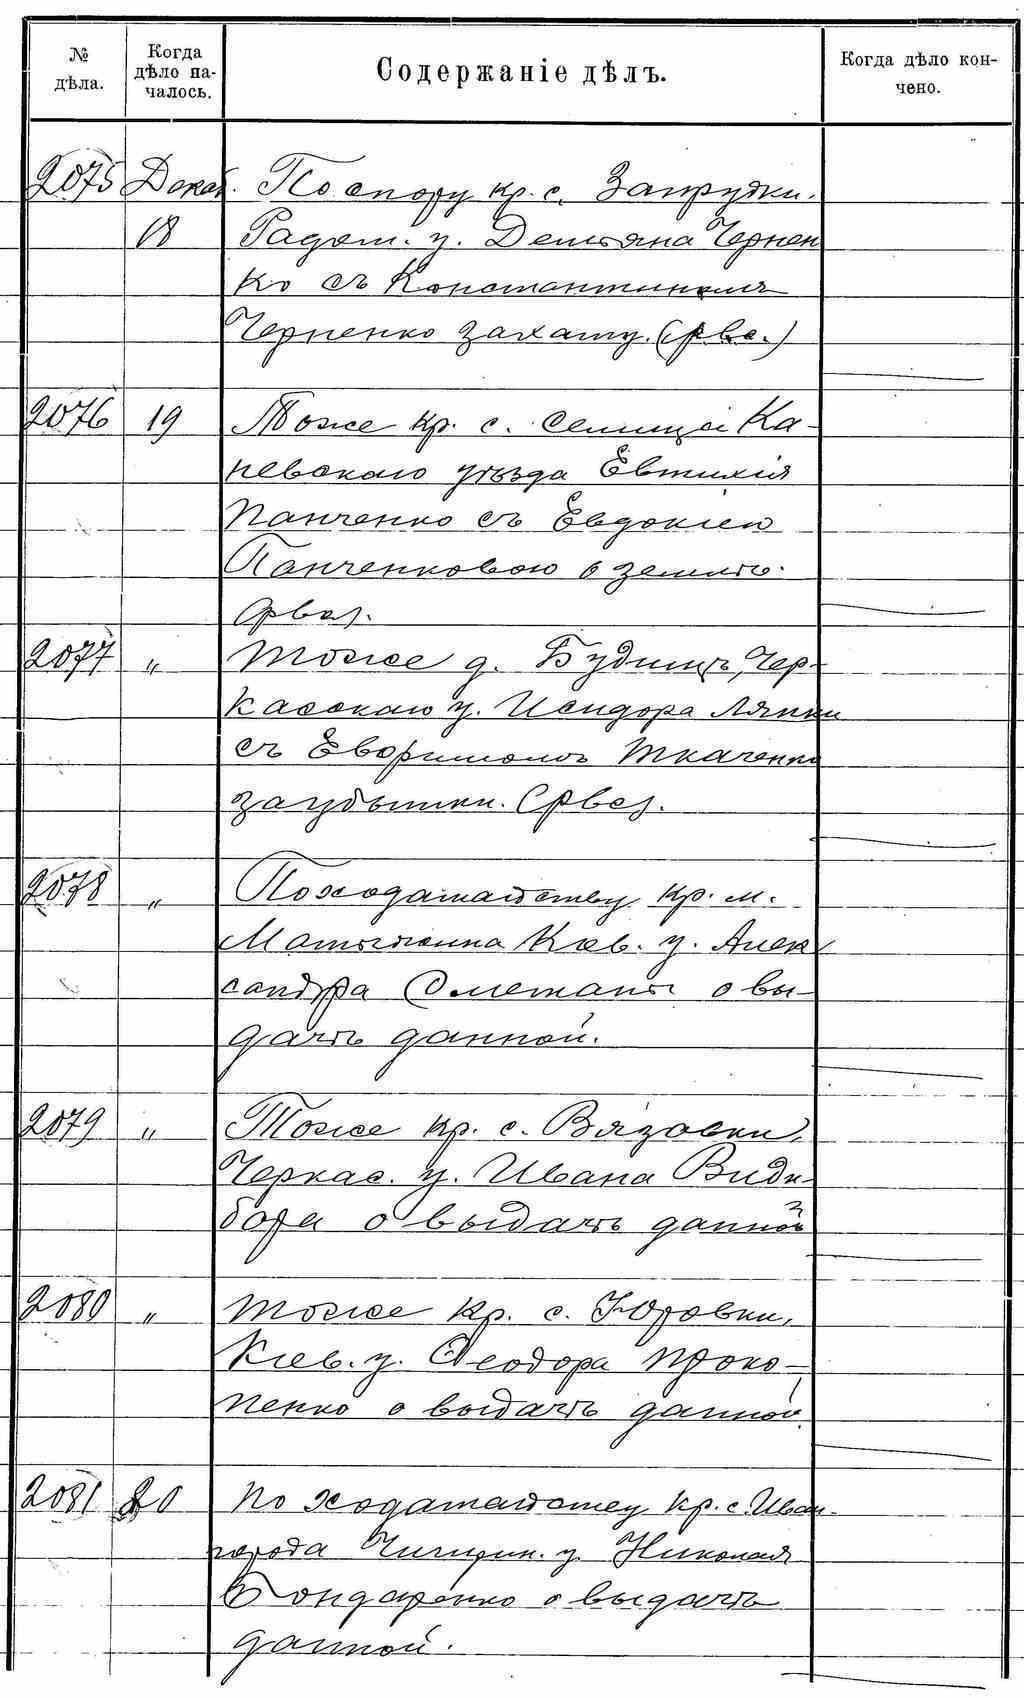 № дѣла. Когда дѣло началось. Содержаніе дѣлъ. Когда дѣло кончено.
2075 Декаб. По спору кр. с. Запрудки.
18 Радом. у. Демьяна Чернен
ко съ Константиномъ
Черненко за хату. (рвс.)
2076 19 Тоже кр. с. Селища Ка-
невскаго уѣзда Евтихія
Панченко съ Евдокіею
Панченковою о землѣ.
(рвс).
2077 " Тоже д. Будищъ, Чер-
касскаго у. Исидора Ляпки
съ Евфимомъ Ткаченко
за убытки. (рвс).
2078 " По ходатайству кр. м.
Мотыжина Кіев. у. Алек
сандра Сметаны о вы-
дачѣ данной.
2079 " Тоже кр. с. Вязовки,
Черкас. у. Ивана Види-
бора о выдачѣ данной
2080 " Тоже кр. с. Юровки,
Кіев. у. Ѳеодора Проко-
пенко о выдачѣ данной.
2081 20 По ходатайству кр. с. Иван-
города Чигирин. у. Николая
Бондаренко о выдачѣ
данной.